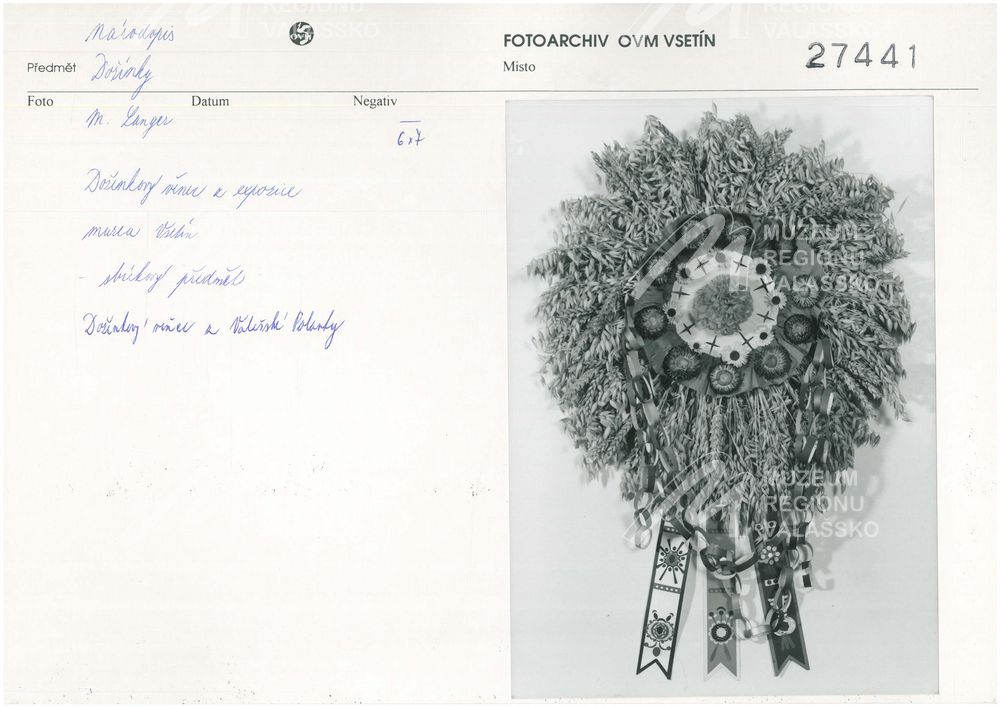 Národopis
Předmět Dožínky
OVM
FOTOARCHIV OVM VSETÍN
Místo
27441
Foto Datum Negativ
M. Langer
6x7
Dožínkový věnec z expozice
muzea Vsetín
- sbírkový předmět
Dožínkový věnec z Valašské Polanky
MUZEUM
REGIONU
VALAŠSKO
MUZEUM
REGIONU
VALAŠSKO
REGIONU
VALAŠSKO
REGIONU
VALAŠSKO